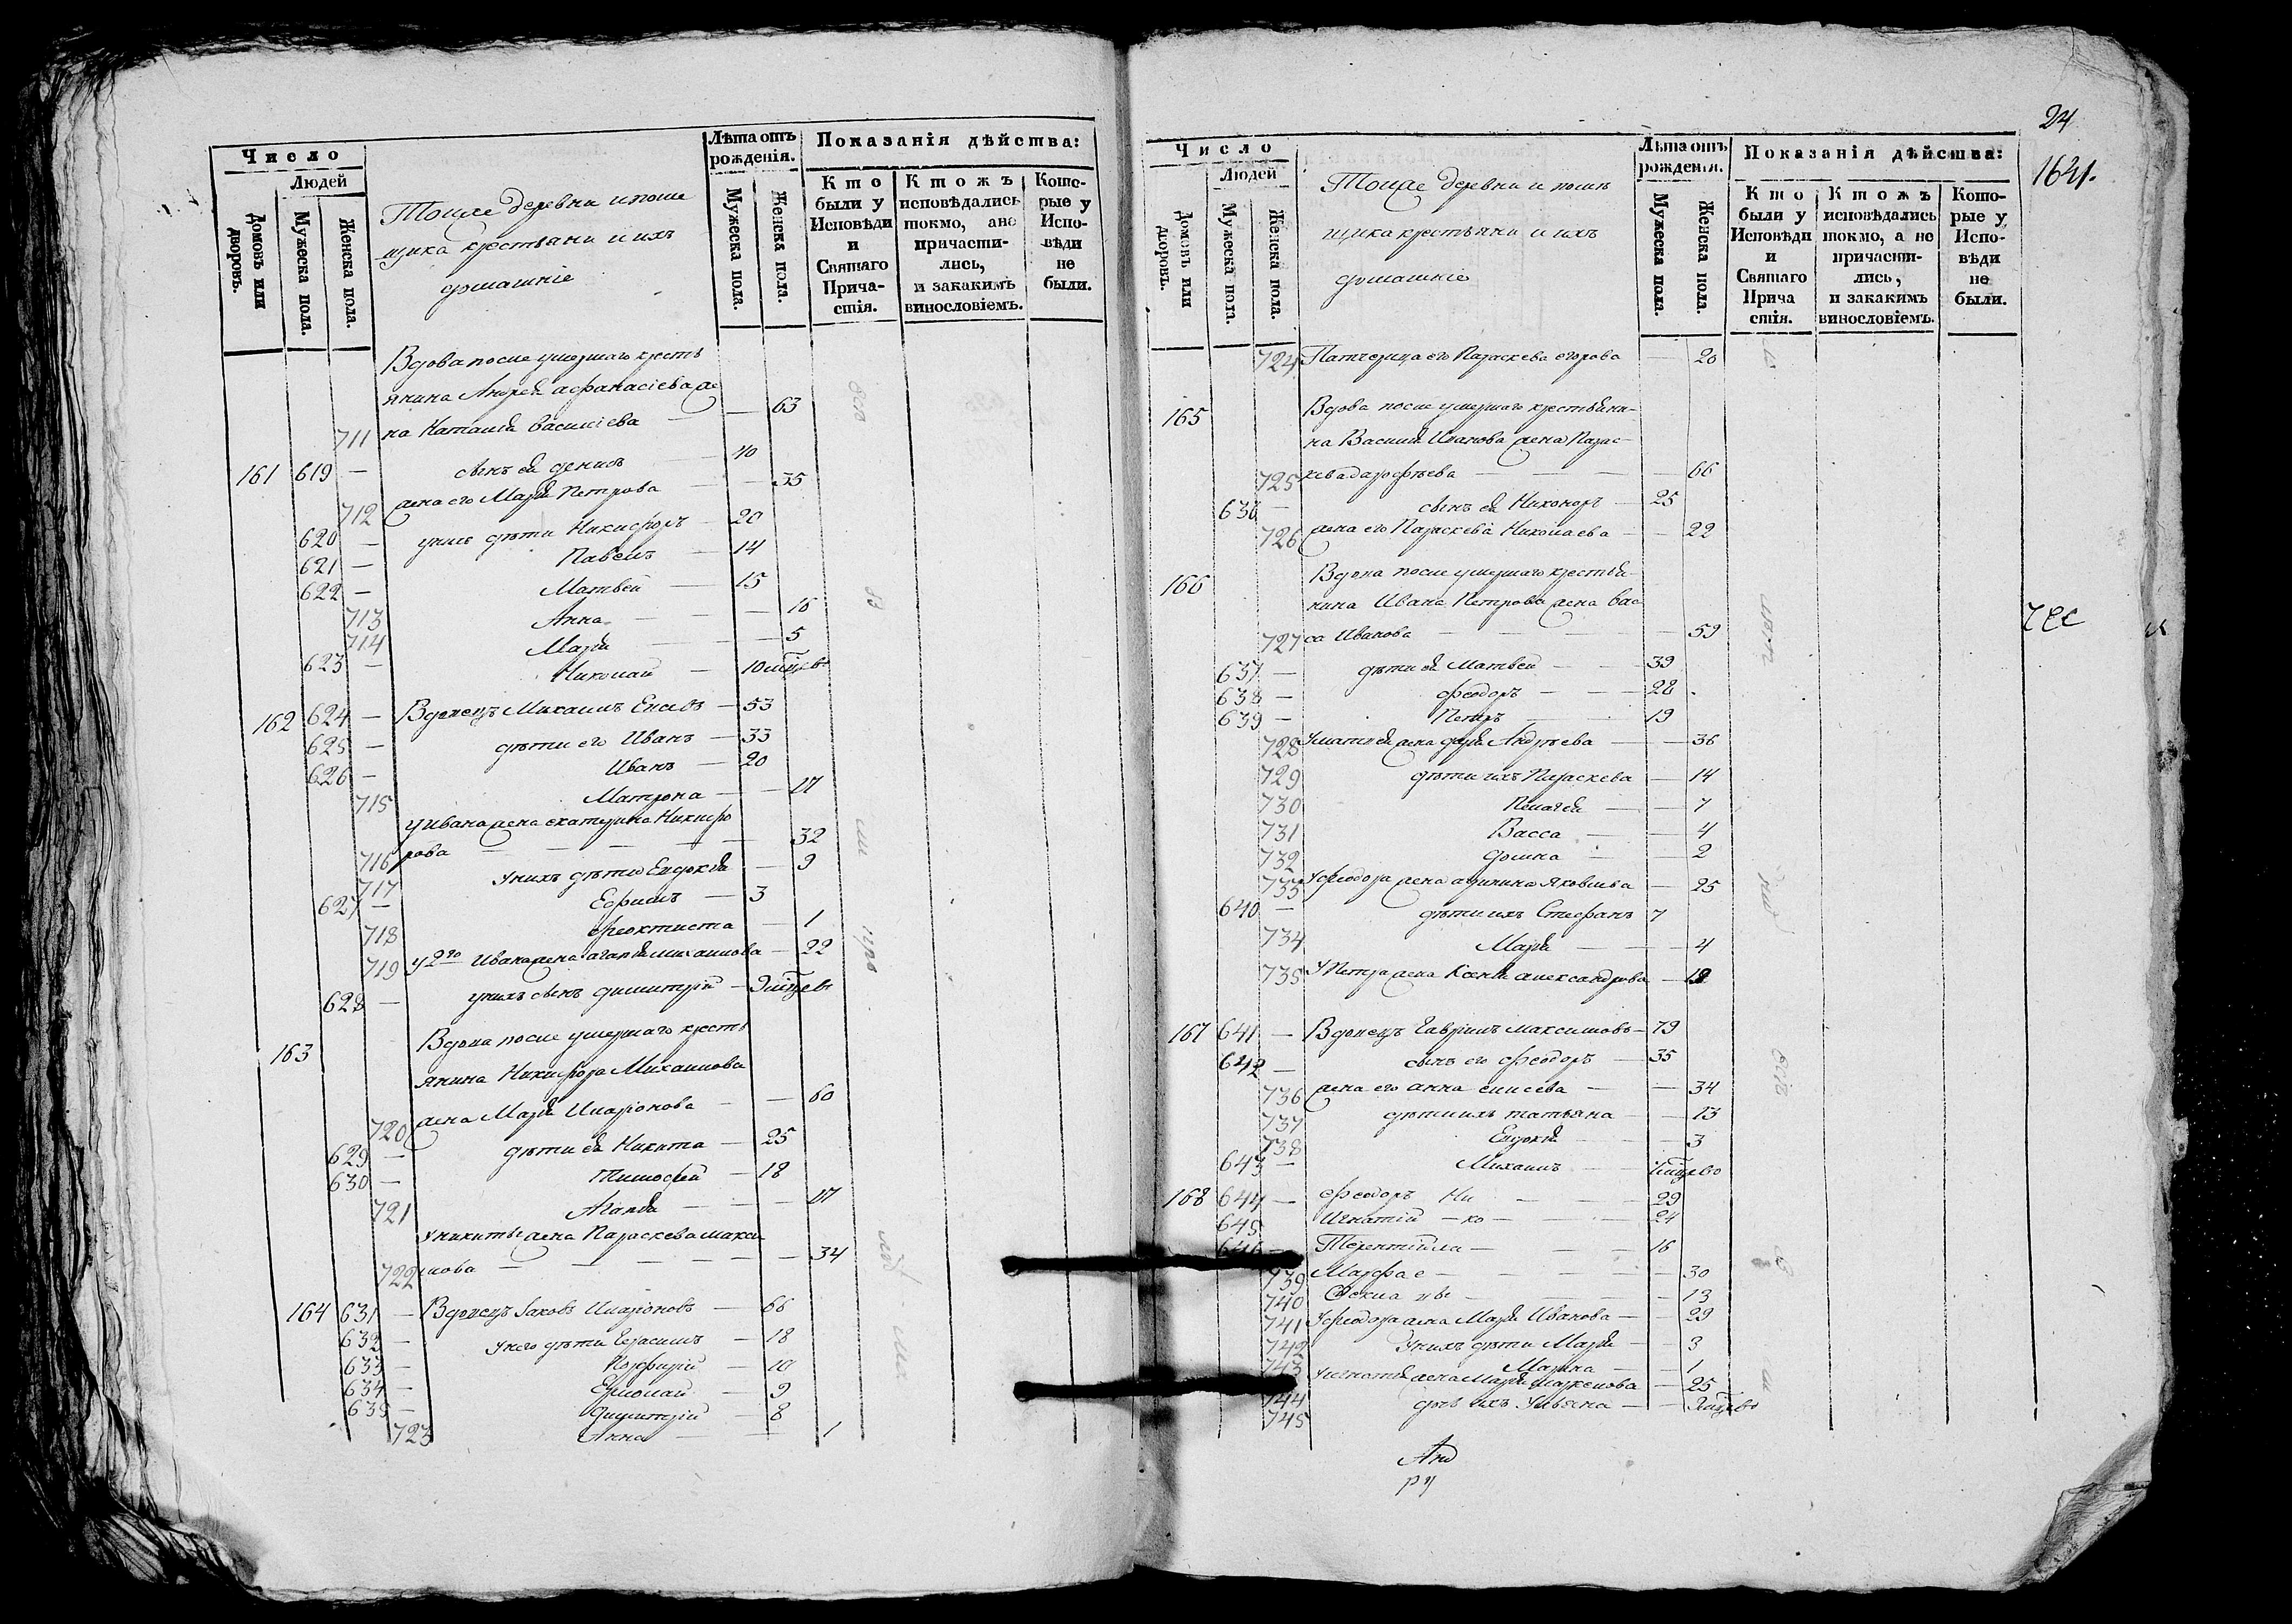 Число
Людей
Домовъ или дворовъ.
Мужеска пола.
Женска пола.
Тоцже деревни и поме
щика крестьяни и ихъ
домашнiе
Лѣта отъ рожденiя.
Мужеска пола.
Женска пола.
Показанiя дѣйства:
Кто были у Исповѣди и Святаго Причастiя.
Ктожъ исповѣдались токмо, а не причастились, и закакимъ винословiемъ.
Которые у Исповѣди не были.
Вдова после умершаго кресть
янина Андрея Афанасiева же
711 на Наталiя Василiева — 63
161 619 — сынъ ея Денисъ — 40
712 жена его Марiя Петрова — 35
620 — у нихъ дѣти Никифоръ — 20
621 — Павелъ — 14
622 — Матвей — 15
713 Анна — 16
714 Марiя — 5
623 — Николай — 10
162 624 — Вдовецъ Михаилъ — 53
625 — дѣти его Иванъ — 33
626 — Иванъ — 20
715 Матрона — 17
у Ивана жена Екатерина Никифо
716 рова — 32
717 у нихъ дѣти Евдокiя — 9
627 — Ефимъ — 3
718 Феоктиста — 1
719 у 2го Ивана жена Агапiя Михаилова — 22
628 — у нихъ сынъ Димитрiй —
163 Вдова после умершаго кресть
янина Никифора Михаилова
720 жена Марiя Иларiонова — 60
629 — дѣти ея Никита — 25
630 — Тимофей — 18
721 Агапiя — 17
у Никиты жена Параскева Макси
722 мова — 34
164 631 — Вдовецъ Iаковъ Иларiоновъ — 66
632 — у него дѣти Герасимъ — 18
633 — Порфирiй — 10
634 — Ермолай — 9
635 — Димитрiй — 8
723 Анна — 1
24
1641.
Число
Людей
Домовъ или дворовъ.
Мужеска пола.
Женска пола.
Тоцже деревни и помѣ
щика крестьяни и ихъ
домашнiе
Лѣта отъ рожденiя.
Мужеска пола.
Женска пола.
Показанiя дѣйства:
Кто были у Исповѣди и Святаго Прича стiя.
Ктожъ исповѣдались токмо, а не причастились, и закакимъ винословiемъ.
Которые у Исповѣди не были.
724 Патчерица его Параскева Егорова — 20
165 Вдова после умершаго крестьяни-
на Василiя Иванова жена Парас-
725 кева Дорофѣева — 66
636 — сынъ ея Никоноръ — 25
726 жена его Параскева Николаева — 22
166 Вдова после умершаго крестья-
нина Ивана Петрова жена Вас
727 са Иванова — 59
637 — дѣти ея Матвей — 39
638 — Феодоръ — 28
639 — Петръ — 19
728 У Матвея жена Дарiя Андрѣева — 36
729 дѣти ихъ Параскева — 14
730 Пелагея — 7
731 Васса — 4
732 Домна — 2
733 У Феодора жена Акулина Яковлева — 25
640 — дѣти ихъ Стефанъ 7
734 Марiя — 4
735 У Петра жена Ксенiя Александрова — 18
167 641 — Вдовецъ Гаврiилъ Максимовъ — 79
642 — сынъ его Феодоръ — 35
736 жена его Анна Елисева — 34
737 дѣти ихъ Татьяна — 13
738 Евдокiя — 3
643 — Михаилъ —
168 644 — Феодоръ Ни — 29
645 Игнатiй — ко — 24
646 — Терентiй ла — 16
739 Марфа е — 30
740 Фекла вы — 13
741 У Феодора жена Марiя Иванова — 29
742 У нихъ дѣти Марiя — 3
743 Марина — 1
744 У Игнатiя жена Марiя — 25
745 дочь ихъ Ульяна —
Анд
рѣ